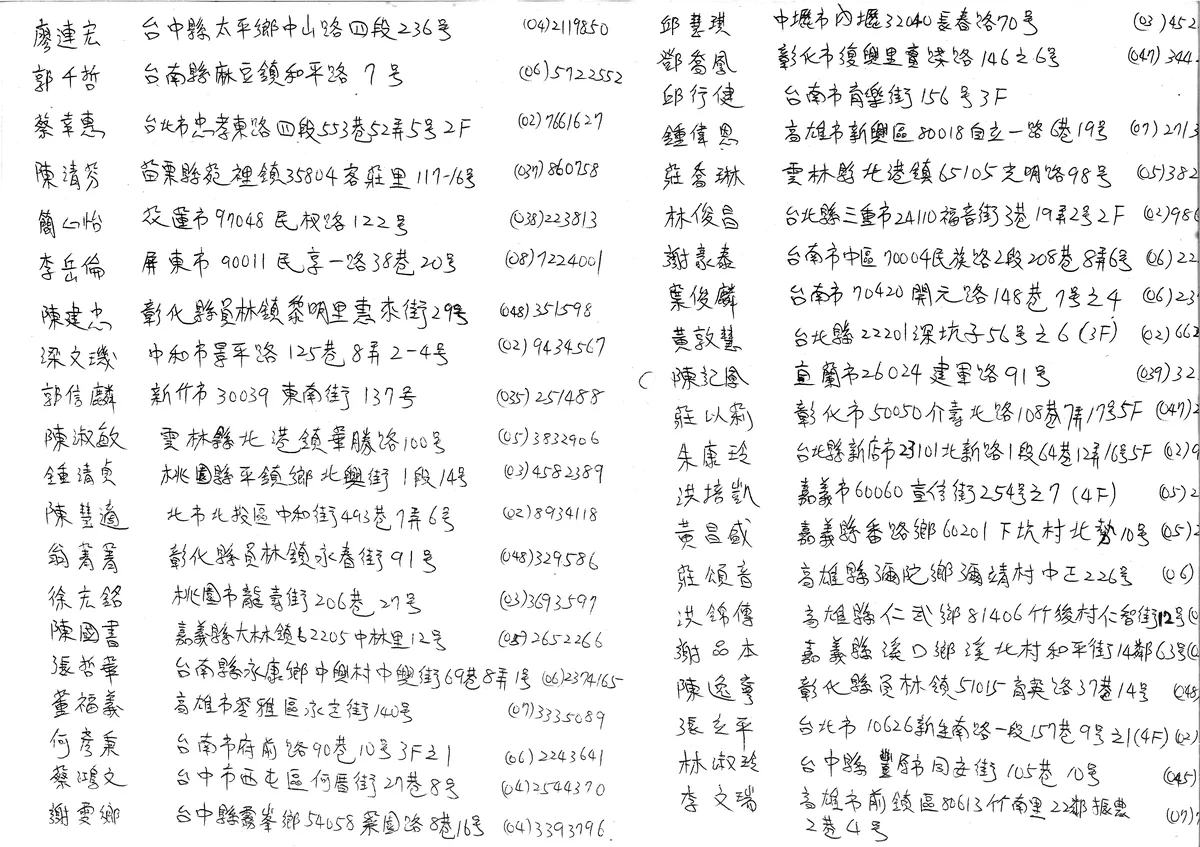 廖連宏 台中縣太平鄉中山路四段236号 (04)2119850
郭千哲 台南縣麻豆鎮和平路 7号 (06)5722552
蔡幸惠 台北市忠孝東路四段553巷52弄5号2F (02)7661627
陳清芬 苗栗縣苑裡鎮35804客莊里117-16号 (037)860758
簡心怡 花蓮市97048民权路122号 (038)223813
李岳倫 屏東市90011民享一路38巷20号 (08)7224001
陳建忠 彰化縣員林鎮黎明里惠來街29号 (048)351598
梁文璣 中和市景平路125巷8弄2-4号 (02)9434567
郭信麟 新竹市30039東南街137号 (035)251488
陳淑敏 雲林縣北港鎮華勝路100号 (05)3832906
鍾清貞 桃園縣平鎮鄉北興街1段14号 (03)4582389
陳慧適 北市北投區中和街493巷7弄6号 (02)8934118
翁菁菁 彰化縣員林鎮永春街91号 (048)329586
徐宏銘 桃園市龍壽街206巷27号 (03)3693597
陳國書 嘉義縣大林鎮62205中林里12号 (05)2652266
張哲華 台南縣永康鄉中興村中興街69巷8弄1号 (06)2374165
董福義 高雄市苓雅區永定街140号 (07)3335089
何彥秉 台南市府前路90巷10号3F之1 (06)2243641
蔡鴻文 台中市西屯區何厝街27巷8号 (04)2544370
謝雯鄉 台中縣霧峯鄉54058菜園路8巷16号 (04)3393796
邱慧琪 中壢市內壢32040長春路70号 (03)452
鄧喬鳳 彰化市復興里臺深路146之6号 (047)344
邱行健 台南市育樂街156号3F
鍾偉恩 高雄市新興區80018自立一路6巷19号 (07)2713
莊喬琳 雲林縣北港鎮65105光明路98号 (05)382
林俊昌 台北縣三重市24110福音街3巷19弄2号2F (02)986
謝豪泰 台南市中區70004民族路2段208巷8弄6号 (06)22
葉俊麟 台南市70420開元路148巷7号之4 (06)23
黃敦慧 台北縣22201深坑子56号之6(3F) (02)662
陳記鳳 宜蘭市26024建軍路91号 (039)32
莊以莉 彰化市50050介壽北路108巷7弄17号5F (047)3
朱康玲 台北縣新店市23101北新路1段64巷12弄16号5F (02)9
洪培凱 嘉義市60060宣信街254号之7(4F) (05)2
黃昌盛 嘉義縣番路鄉60201下坑村北勢10号 (05)2
莊頌音 高雄縣彌陀鄉彌靖村中正226号 (06)
洪錦傳 高雄縣仁武鄉81406竹後村仁智街12号
謝品本 嘉義縣溪口鄉溪北村和平街514鄰63号
陳逸寧 彰化縣員林鎮51015育英路37巷14号 (048
張立平 台北市10626新生南路一段157巷9号之1(4F) (02)
林淑玲 台中縣豐原市同安街105巷10号 (045)
李文瑞 高雄市前鎮區80613竹南里22鄰振農 (07)7
2巷4号